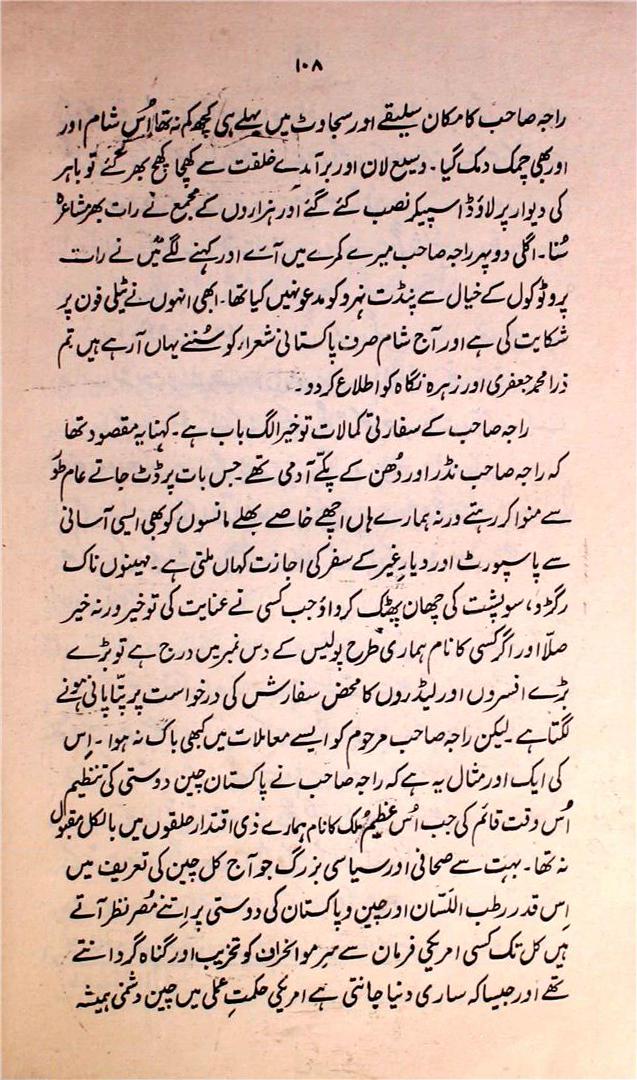 ۱۰۸
راجہ صاحب کا مکان سلیقے اور سجاوٹ میں پہلے ہی کچھ کم نہ تھا اُس شام اور
اور بھی چمک دمک گیا۔ وسیع لان اور برآمدے خلقت سے کھچا کھچ بھر گئے تو باہر
کی دیوار پر لاؤڈ اسپیکر نصب کئے گئے اور ہزاروں کے مجمع نے رات بھر مشاعرہ
سُنا۔ اگلی دوپہر راجہ صاحب میرے کمرے میں آئے اور کہنے لگے میں نے رات
پروٹوکول کے خیال سے پنڈت نہرو کو مدعو نہیں کیا تھا۔ ابھی انہوں نے ٹیلی فون پر
شکایت کی ہے اور آج شام صرف پاکستانی شعراء کو سُننے یہاں آ رہے ہیں تم
ذرا محمد جعفری اور زہرہ نگاہ کو اطلاع کر دو۔
راجہ صاحب کے سفارتی کمالات تو خیر الگ باب ہے۔ کہنا یہ مقصود تھا
کہ راجہ صاحب نڈر اور دُھن کے پکے آدمی تھے۔ جس بات پر ڈٹ جاتے عام طور
سے منوا کر رہتے ورنہ ہمارے ہاں اچھے خاصے بھلے مانسوں کو بھی ایسی آسانی
سے پاسپورٹ اور دیارِ غیر کے سفر کی اجازت کہاں ملتی ہے۔ مہینوں ناک
رگڑو، سو پشت کی چھان پھٹک کرواؤ جب کسی نے عنایت کی تو خیر ورنہ خیر
صلّا اور اگر کسی کا نام ہماری طرح پولیس کے دس نمبر میں درج ہے تو بڑے
بڑے افسروں اور لیڈروں کا محض سفارش کی درخواست پر پتّا پانی ہونے
لگتا ہے۔ لیکن راجہ صاحب مرحوم کو ایسے معاملات میں کبھی باک نہ ہوا۔ اِس
کی ایک اور مثال یہ ہے کہ راجہ صاحب نے پاکستان چین دوستی کی تنظیم
اُس وقت قائم کی جب اُس عظیم مُلک کا نام ہمارے ذی اقتدار حلقوں میں بالکل مقبول
نہ تھا۔ بہت سے صحافی اور سیاسی بزرگ جو آج کل چین کی تعریف میں
اِس قدر رطب اللّسان اور چین و پاکستان کی دوستی پر اِتنے مُصر نظر آتے
ہیں کل تک کسی امریکی فرمان سے سرِ مو انحراف کو تخریب اور گناہ گردانتے
تھے اور جیسا کہ ساری دنیا جانتی ہے امریکی حکمتِ عملی میں چین دشمنی ہمیشہ